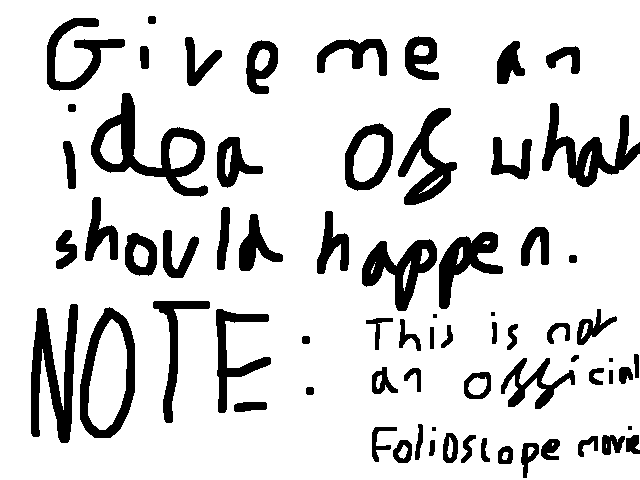 Give me an
idea of what
should happen.
NOTE: This is not
an official
Folioscope movie